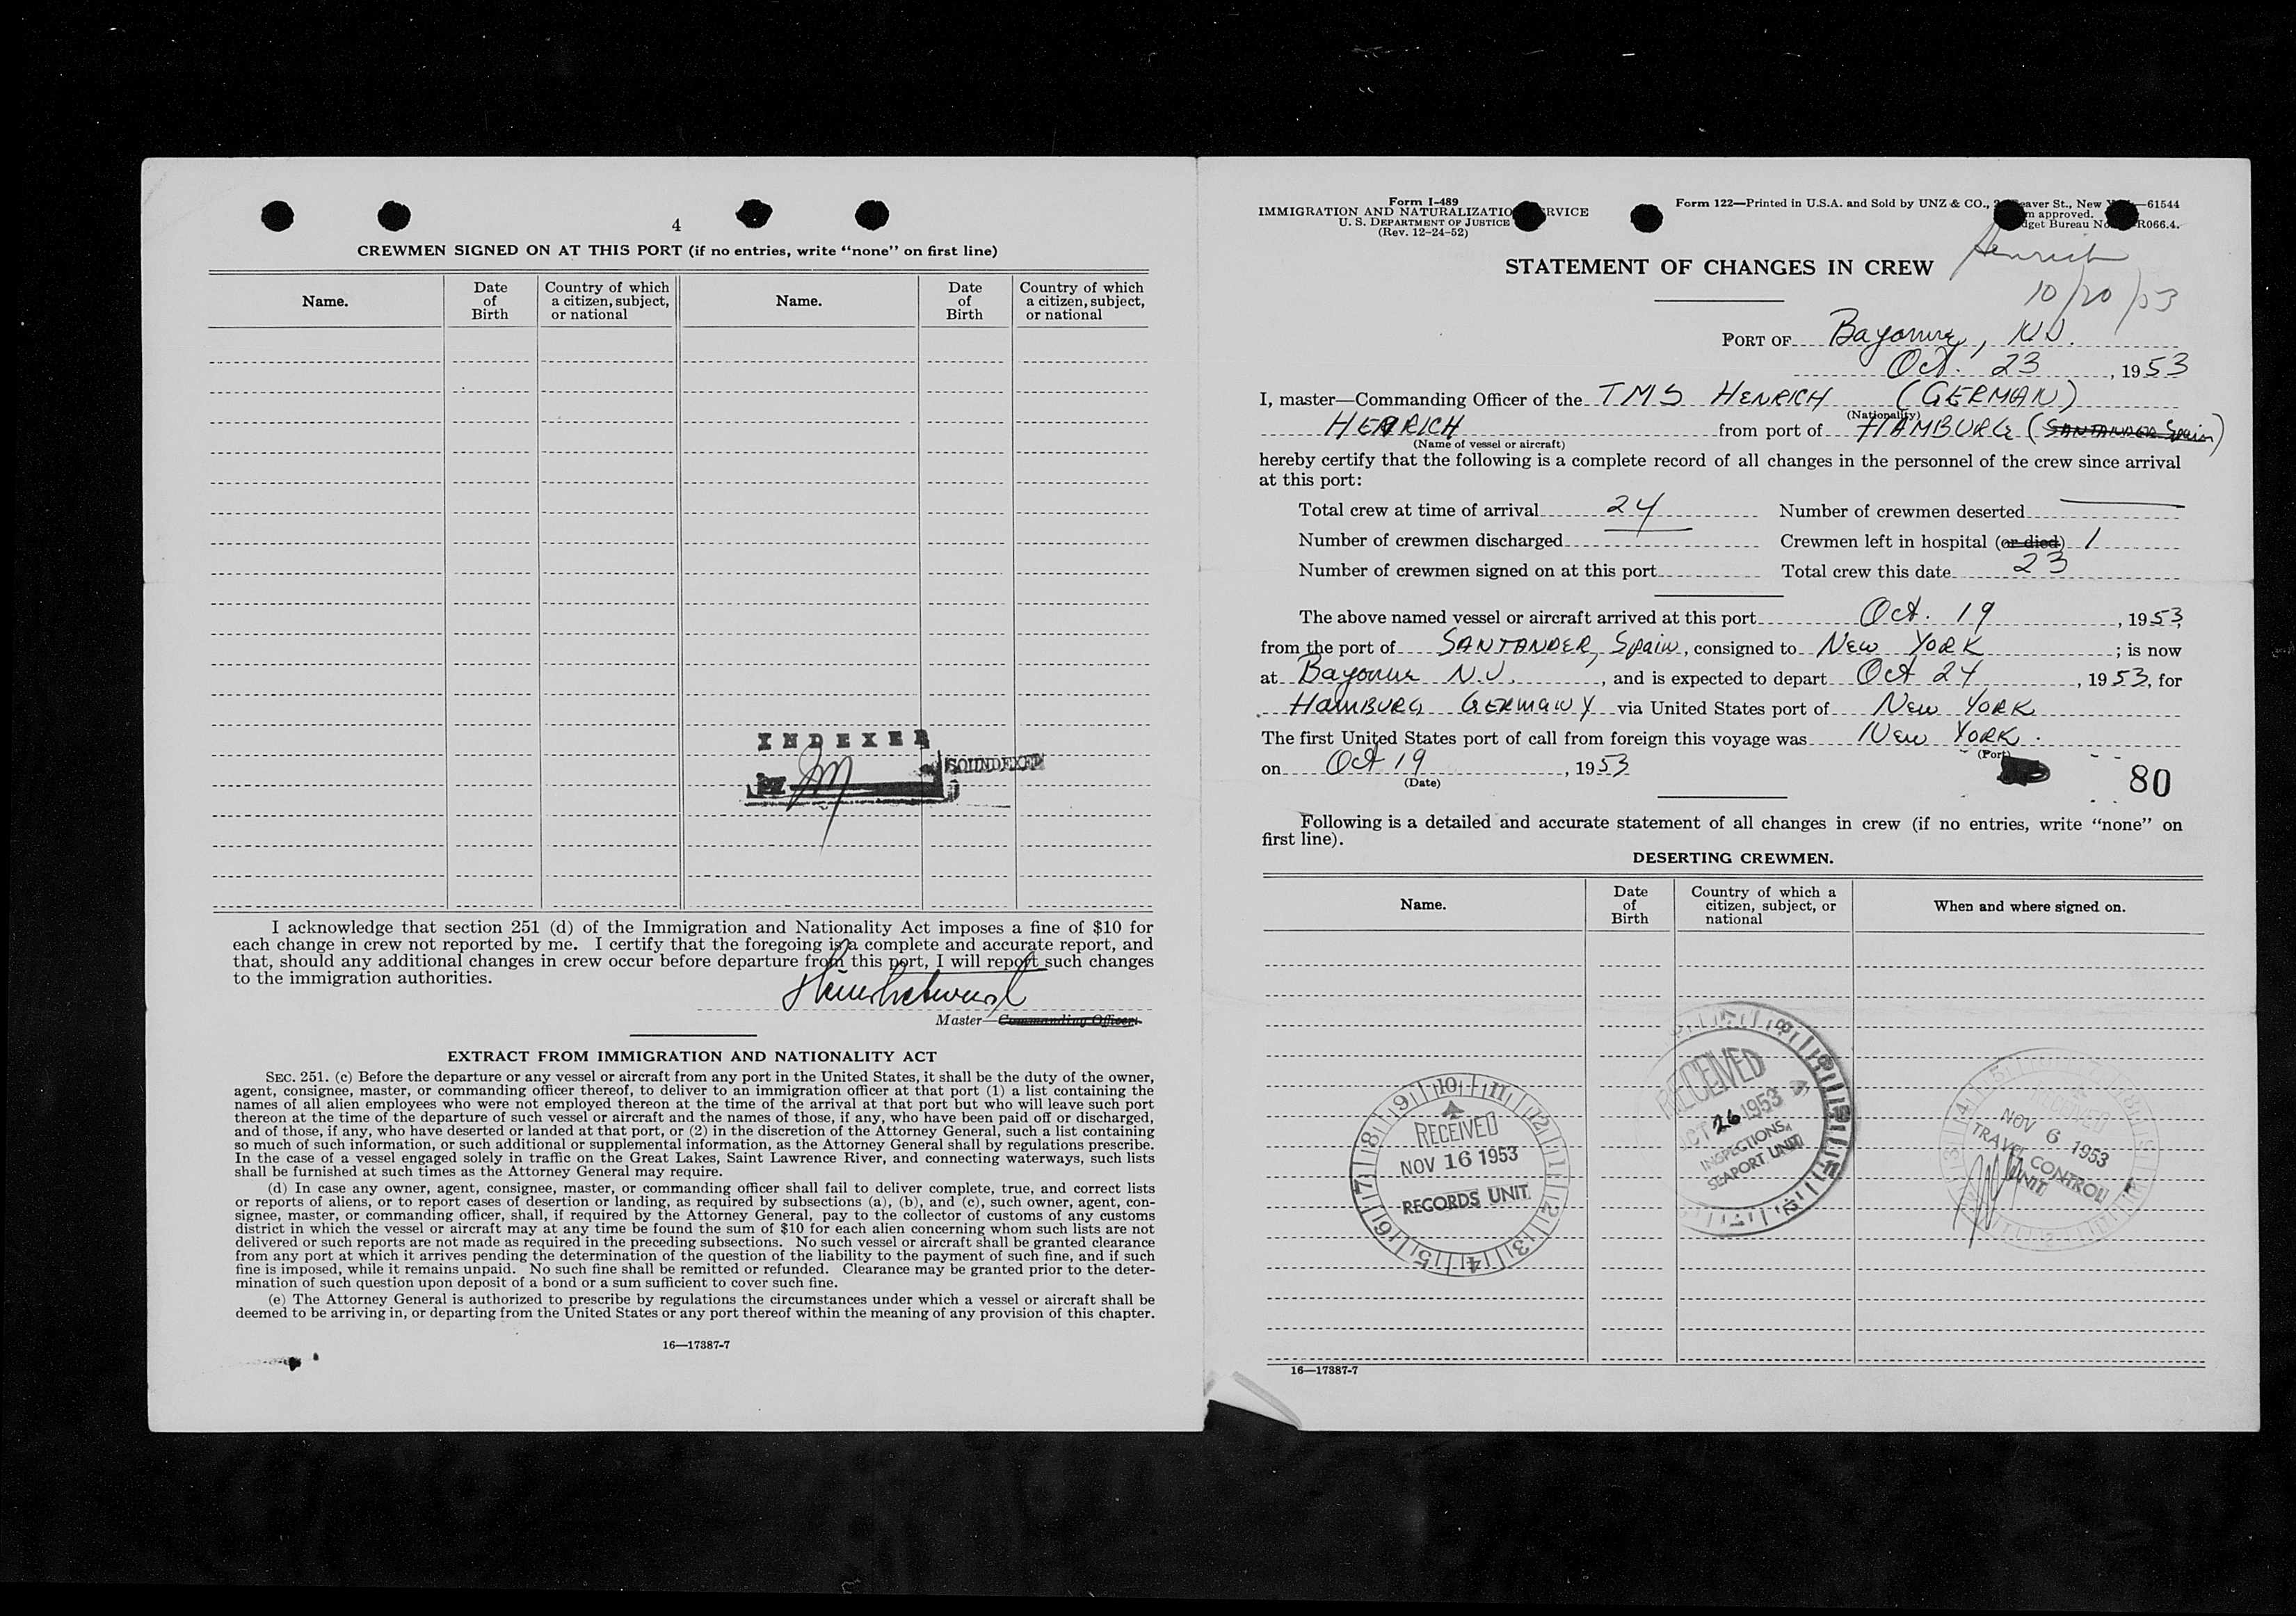 4
CREWMEN SIGNED ON AT THIS PORT (if no entries, write “none” on first line)
Name.
Date of Birth
Country of which a citizen, subject, or national
Name.
Date of Birth
Country of which a citizen, subject, or national
INDEXED
SOUNDEXED
I acknowledge that section 251 (d) of the Immigration and Nationality Act imposes a fine of $10 for
each change in crew not reported by me. I certify that the foregoing is a complete and accurate report, and
that, should any additional changes in crew occur before departure from this port, I will report such changes
to the immigration authorities.
Master—Commanding Officer.
EXTRACT FROM IMMIGRATION AND NATIONALITY ACT
SEC. 251. (c) Before the departure or any vessel or aircraft from any port in the United States, it shall be the duty of the owner,
agent, consignee, master, or commanding officer thereof, to deliver to an immigration officer at that port (1) a list containing the
names of all alien employees who were not employed thereon at the time of the arrival at that port but who will leave such port
thereon at the time of the departure of such vessel or aircraft and the names of those, if any, who have been paid off or discharged,
and of those, if any, who have deserted or landed at that port, or (2) in the discretion of the Attorney General, such a list containing
so much of such information, or such additional or supplemental information, as the Attorney General shall by regulations prescribe.
In the case of a vessel engaged solely in traffic on the Great Lakes, Saint Lawrence River, and connecting waterways, such lists
shall be furnished at such times as the Attorney General may require.
(d) In case any owner, agent, consignee, master, or commanding officer shall fail to deliver complete, true, and correct lists
or reports of aliens, or to report cases of desertion or landing, as required by subsections (a), (b), and (c), such owner, agent, con-
signee, master, or commanding officer, shall, if required by the Attorney General, pay to the collector of customs of any customs
district in which the vessel or aircraft may at any time be found the sum of $10 for each alien concerning whom such lists are not
delivered or such reports are not made as required in the preceding subsections. No such vessel or aircraft shall be granted clearance
from any port at which it arrives pending the determination of the question of the liability to the payment of such fine, and if such
fine is imposed, while it remains unpaid. No such fine shall be remitted or refunded. Clearance may be granted prior to the deter-
mination of such question upon deposit of a bond or a sum sufficient to cover such fine.
(e) The Attorney General is authorized to prescribe by regulations the circumstances under which a vessel or aircraft shall be
deemed to be arriving in, or departing from the United States or any port thereof within the meaning of any provision of this chapter.
16—17387-7
Form I-489
IMMIGRATION AND NATURALIZATIO RVICE
U. S. DEPARTMENT OF JUSTICE
(Rev. 12-24-52)
Form 122—Printed in U.S.A. and Sold by UNZ & CO., eaver St., New —61544
m approved.
dget Bureau No. R066.4.
Henrich
10/20/53
STATEMENT OF CHANGES IN CREW
PORT OF Bayonne, N.J.
Oct. 23, 1953
I, master—Commanding Officer of the TMS HENRICH (GERMAN)
(Nationality)
HENRICH from port of HAMBURG (SANTANDER Spain)
(Name of vessel or aircraft)
hereby certify that the following is a complete record of all changes in the personnel of the crew since arrival
at this port:
Total crew at time of arrival 24 Number of crewmen deserted
Number of crewmen discharged Crewmen left in hospital (or died) 1
Number of crewmen signed on at this port Total crew this date 23
The above named vessel or aircraft arrived at this port Oct. 19, 1953,
from the port of SANTANDER, Spain, consigned to New YORK; is now
at Bayonne N.J., and is expected to depart Oct 24, 1953, for
HAMBURG GERMANY via United States port of New YORK
The first United States port of call from foreign this voyage was New YORK.
(Port)
on Oct 19, 1953
(Date)
80
Following is a detailed and accurate statement of all changes in crew (if no entries, write “none” on
first line).
DESERTING CREWMEN.
Name.
Date of Birth
Country of which a citizen, subject, or national
When and where signed on.
RECEIVED
NOV 16 1953
RECORDS UNIT
RECEIVED
OCT 26 1953
INSPECTIONS
SEAPORT UNIT
RECEIVED
NOV 6 1953
TRAVEL CONTROL
UNIT
16—17387-7